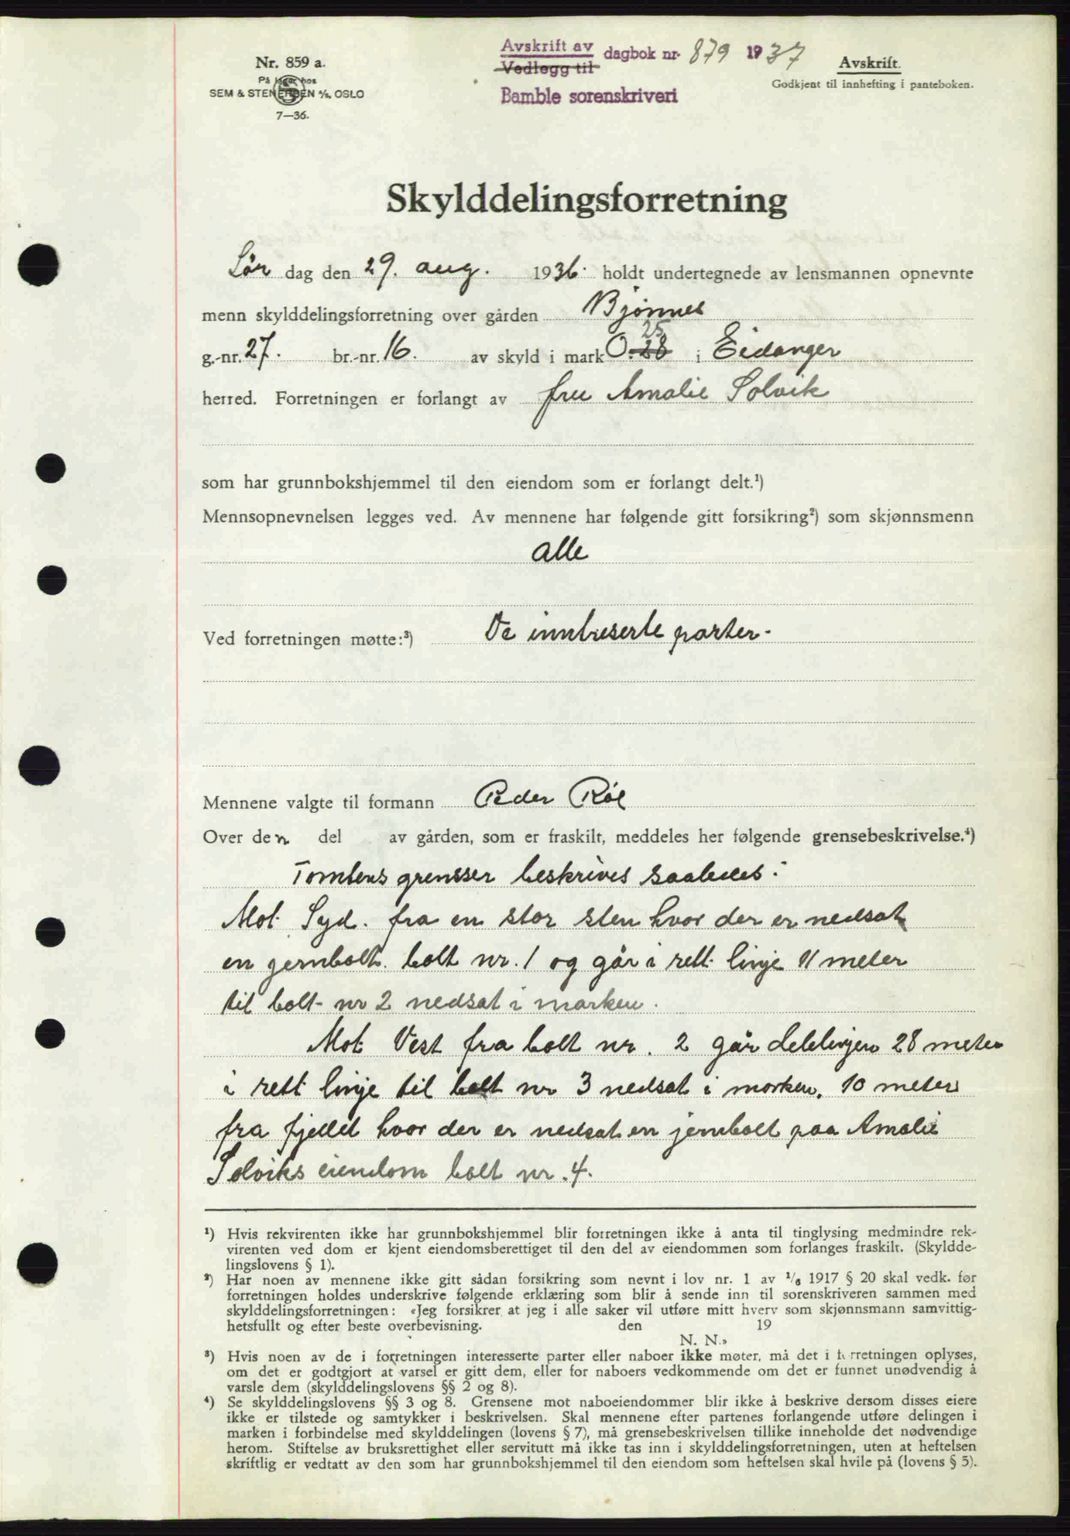 Nr. 859 a.
På lager hos
SEM & STENERSEN A/S, OSLO
7—36.
Avskrift av
Vedlegg til
dagbok nr. 879 1937
Bamble sorenskriveri
Avskrift.
Godkjent til innhefting i panteboken.
Skylddelingsforretning
Lør dag den 29. aug. 1936. holdt undertegnede av lensmannen opnevnte
menn skylddelingsforretning over gården Bjønnes
25
g.-nr. 27. br.-nr. 16. av skyld i mark 0.28 i Eidanger
herred. Forretningen er forlangt av fru Amalie Solvik
som har grunnbokshjemmel til den eiendom som er forlangt delt.¹)
Mennsopnevnelsen legges ved. Av mennene har følgende gitt forsikring²) som skjønnsmenn
alle
Ved forretningen møtte:³) De inntreserte parter.
Mennene valgte til formann Peder Röe
Over den del av gården, som er fraskilt, meddeles her følgende grensebeskrivelse.⁴)
Tomtens grensser beskrives saaledes:
Mot Syd. fra en stor sten hvor der er nedsat
en jernbolt. bolt nr. 1 og går i rett linje 11 meter
til bolt nr 2 nedsat i marken.
Mot Vest fra bolt nr. 2 går delelinjen 28 meter
i rett linje til bolt nr 3 nedsat i marken, 10 meter
fra fjellet hvor der er nedsat en jernbolt paa Amalie
Solviks eiendom bolt nr. 4.
¹) Hvis rekvirenten ikke har grunnbokshjemmel blir forretningen ikke å anta til tinglysing medmindre rek-
virenten ved dom er kjent eiendomsberettiget til den del av eiendommen som forlanges fraskilt. (Skyldde-
lingslovens § 1).
²) Har noen av mennene ikke gitt sådan forsikring som nevnt i lov nr. 1 av 1/6 1917 § 20 skal vedk. før
forretningen holdes underskrive følgende erklæring som blir å sende inn til sorenskriveren sammen med
skylddelingsforretningen: «Jeg forsikrer at jeg i alle saker vil utføre mitt hverv som skjønnsmann samvittig-
hetsfullt og efter beste overbevisning. den 19
N. N.»
³) Hvis noen av de i forretningen interesserte parter eller naboer ikke møter, må det i forretningen oplyses,
om det er godtgjort at varsel er gitt dem, eller for naboers vedkommende om det er funnet unødvendig å
varsle dem (skylddelingslovens §§ 2 og 8).
⁴) Se skylddelingslovens §§ 3 og 8. Grensene mot naboeiendommer blir ikke å beskrive dersom disses eiere
ikke er tilstede og samtykker i beskrivelsen. Skal mennene efter partenes forlangende utføre delingen i
marken i forbindelse med skylddelingen (lovens § 7), må grensebeskrivelsen tillike inneholde det nødvendige
herom. Stiftelse av bruksrettighet eller servitutt må ikke tas inn i skylddelingsforretningen, uten at heftelsen
skriftlig er vedtatt av den som har grunnbokshjemmel til den eiendom som heftelsen skal hvile på (lovens § 5).